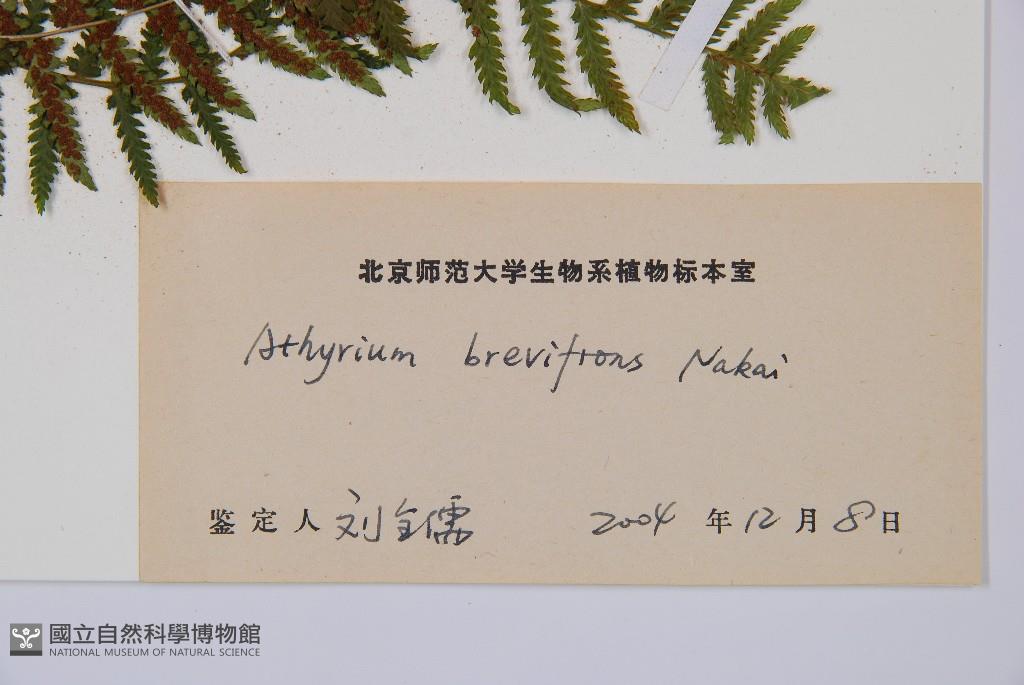 北京师范大学生物系植物标本室
Athyrium brevifrons Nakai
鉴定人 刘全儒 2004 年 12 月 8 日
國立自然科學博物館
NATIONAL MUSEUM OF NATURAL SCIENCE